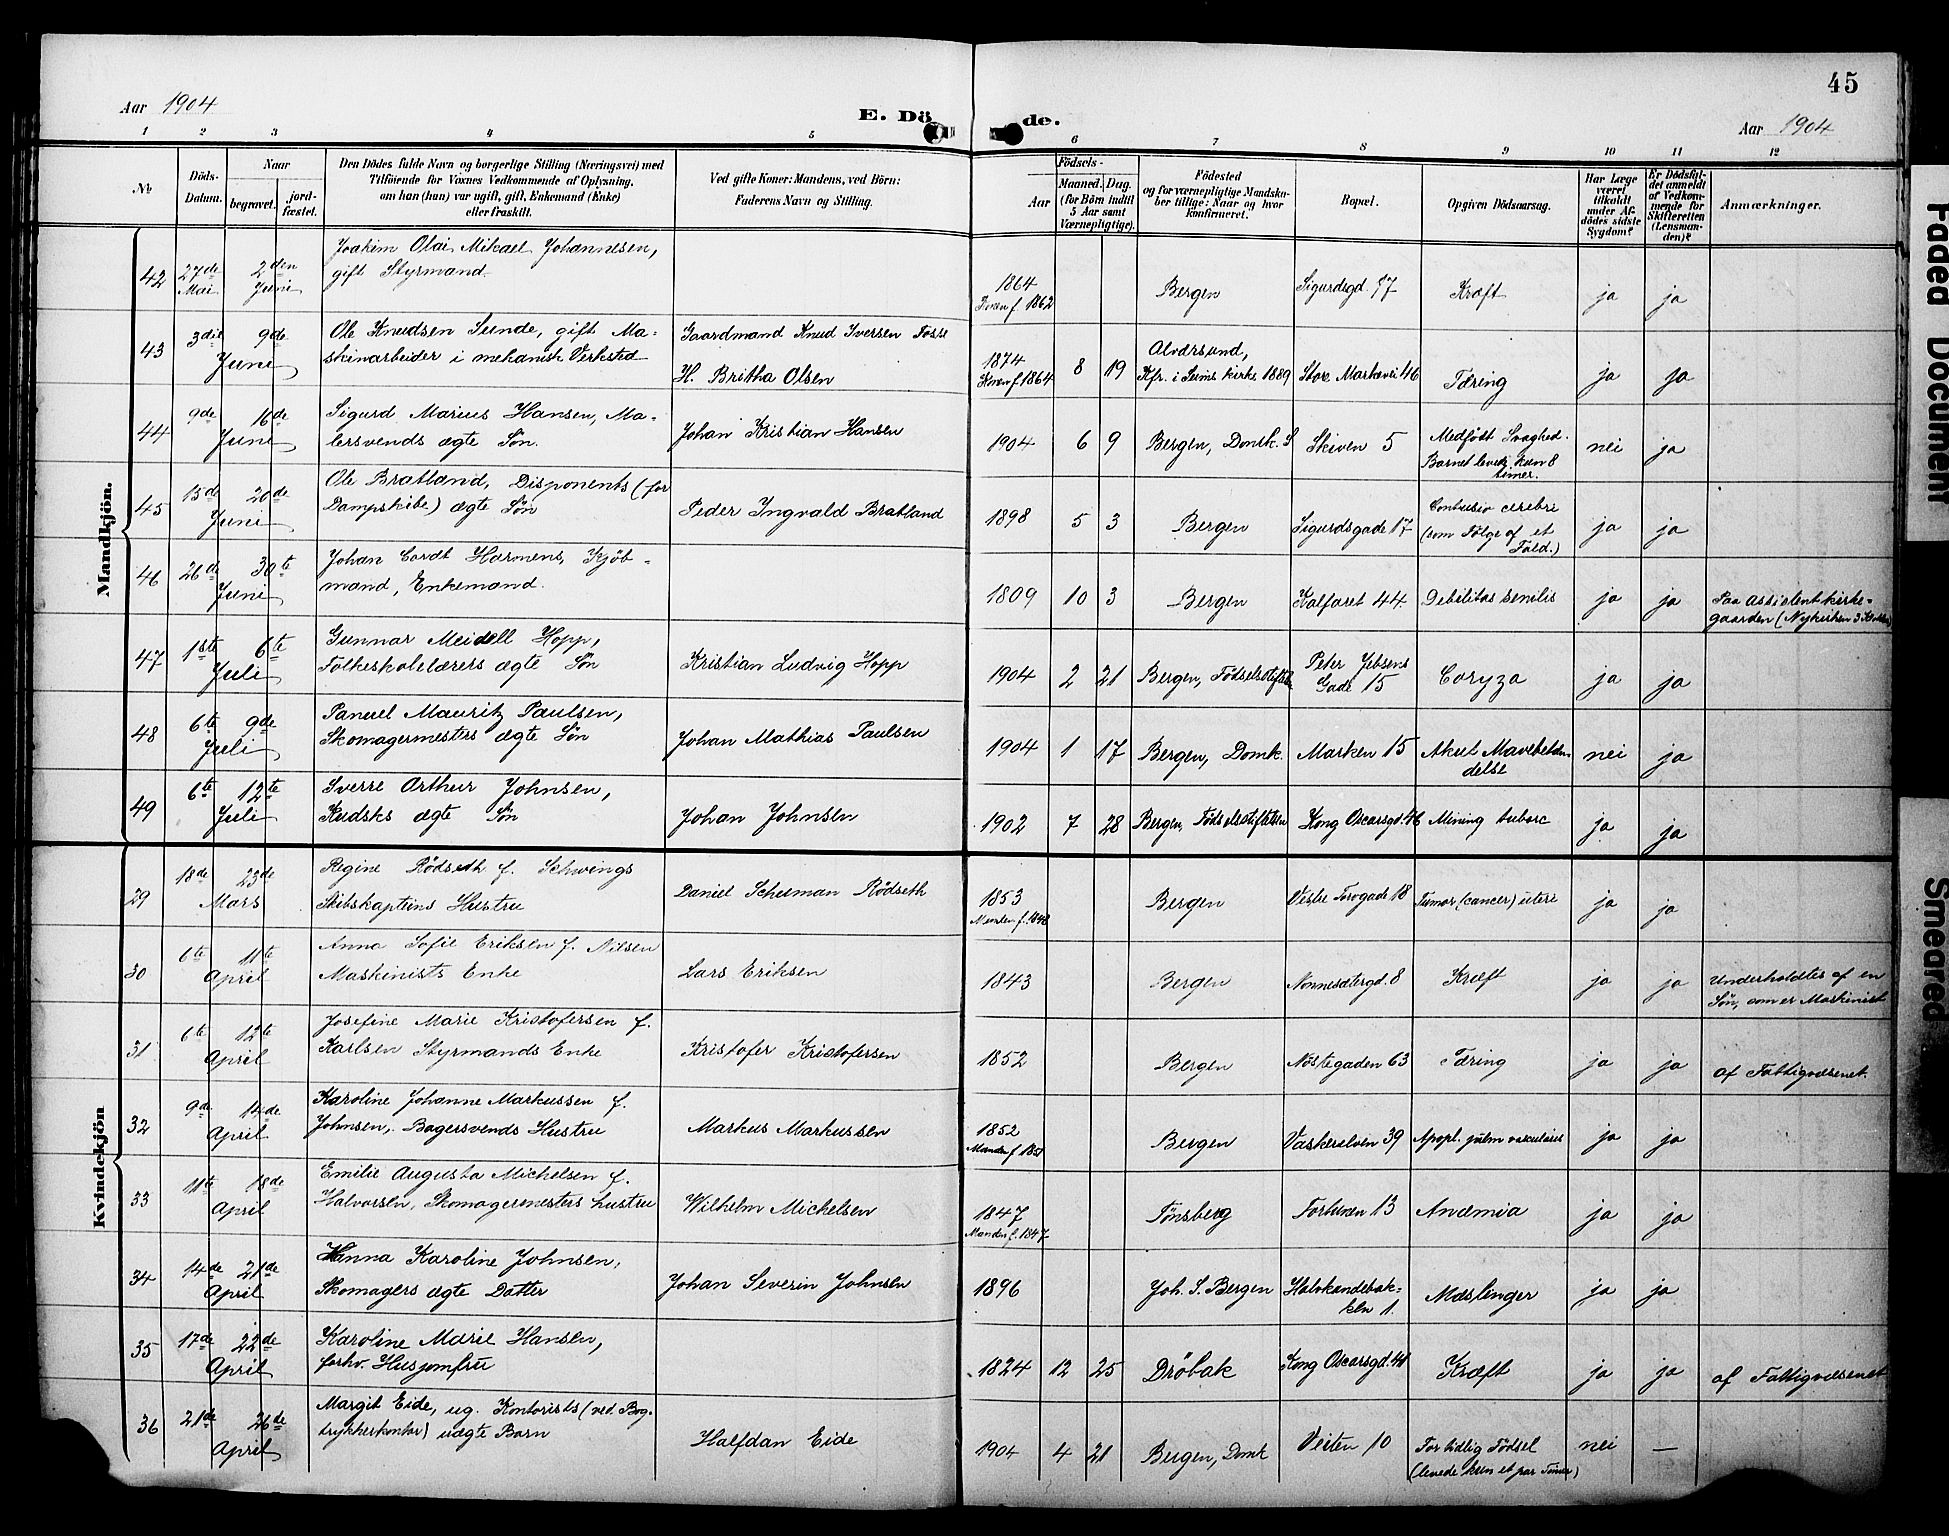 45
Aar 1904
E. Dö de.
Aar 1904
1 2 3 4 5 6 7 8 9 10 11 12
No
Döds-Datum.
Naar
begravet.
jord-fæstet.
Den Dödes fulde Navn og borgerlige Stilling (Næringsvei) med
Tilföiende for Voxnes Vedkommende af Oplysning,
om han (hun) var ugift, gift, Enkemand (Enke)
eller fraskilt.
Ved gifte Koner: Mandens, ved Börn:
Faderens Navn og Stilling.
Födsels-
Aar
Maaned. Dag.
(for Börn indtil
5 Aar samt
Værnepligtige).
Födested
og for værnepligtige Mandska-
ber tillige: Naar og hvor
konfirmeret.
Bopæl.
Opgiven Dödsaarsag.
Har Læge
været
tilkaldt
under Af-
dödes sidste
Sygdom?
Er Dödsfal-
det anmeldt
af Vedkom-
mende for
Skifteretten
(Lensman-
den)?
Anmærkninger.
Mandkjön.
42 27de Mai 2den Juni Joakim Olai Mikael Johannesen,
gift Styrmand
1864 Bergen Sigurdsgd. 17 Kræft ja ja
Konen f. 1862
43 3die 9de Juni Ole Knudsen Sunde, gift Ma-
skinarbeider i mekanisk Verksted
Gaardmand Knud Iversen Fosse
H. Britha Olsen
1874 8 19 Alversund,
Konen f. 1864 Kfr. i Seims kirke 1889 Store Markevei 46 Tæring ja ja
44 9de 16de Juni Sigurd Marius Hansen, Ma-
lersvends ægte Søn.
Johan Kristian Hansen
1904 6 9 Bergen, Domk. S Skiven 5 Medfødt Svaghed.
Barnet levede kun 8
timer. nei ja
45 15de 20de Juni Ole Bratland, Disponents (for
Dampskibe) ægte Søn
Peder Ingvald Bratland
1898 5 3 Bergen Sigurdsgade 17 Contusio cerebri
(som Følge af et
Fald.) ja ja
46 26de 30te Juni Johan Cordt Harmens, Kjøb-
mand, Enkemand.
1809 10 3 Bergen Kalfaret 44. Debilitas senilis ja ja Paa Assistentkirke-
gaarden (Nykirken
47 1ste 6te Juli Gunnar Meidell Hopp,
Folkeskolelærers ægte Søn
Kristian Ludvig Hopp
1904 2 21 Bergen, Fødselsstiftelsen Peter Jebsens
Gade 15 Coryza ja ja
48 6te 9de Juli Paneul Mauritz Paulsen,
Skomagermesters ægte Søn
Johan Mathias Paulsen
1904 1 17 Bergen, Domk. Marken 15 Akut Mavebetæn-
delse nei ja
49 6te 12te Juli Sverre Arthur Johnsen,
Kudsks ægte Søn
Johan Johnsen
1902 7 28 Bergen, Fødselsstiftelsen Kong Oscarsgd. 46 Mening tuberc ja ja
Kvindekjön
29 18de 23de Mars Regine Rödseth f. Schwings
Skibskapteins Hustru
Daniel Schuman Rödseth
1853 Bergen Vestre Torvgade 18 Tumor (cancer) uteri ja ja
Manden f. 1848
30 6te 11te April Anna Sofie Eriksen f. Nilsen
Maskinists Enke
Lars Eriksen
1843 Bergen Nonnesætergd. 8 Kræft ja ja Underholdtes af en
Søn, som er Maskinist
31 6te 12te April Josefine Marie Kristofersen f.
Karlsen Styrmands Enke
Kristofer Kristofersen
1852 Bergen Nøstegaden 63 Tæring ja ja af Fattigvæsenet.
32 9de 14de April Karoline Johanne Markussen f.
Johnsen, Bagersvends Hustru
Markus Markussen
1852 Bergen Vaskerelven 39 Apopl. pulm vascularis ja ja
Manden f. 1851
33 11te 18de April Emilie Augusta Michelsen f.
Halvorsen, Skomagermesters hustru
Wilhelm Michelsen
1847 Tønsberg Fortunen 13 Anæmia ja ja
Manden f. 1847
34 14de 21de April Hanna Karoline Johnsen,
Skomagers ægte Datter
Johan Severin Johnsen
1896 Joh. S. Bergen Halvkandebak-
ken 1. Mæslinger ja ja
35 17de 22de April Karoline Marie Hansen,
forhv. Husjomfru
1824 12 25 Drøbak Kong Oscarsgd. 44 Kræft ja ja af Fattigvæsenet
36 21de 26de April Margit Eide, ug. Kontorists (ved Bog-
trykkerkontor) uægte Barn
Halfdan Eide
1904 4 21 Bergen, Domk Veiten 10 For tidlig Fødsel
(levede kun et par Timer) nei —
Faded Document
Smeared